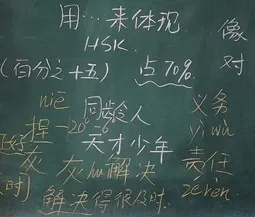 用…来体现
HSK
像
(百分之+五)
占70%
对
niē
同龄人
义务
捏
-20°
yì wù
天才少年
灰
灰hu解决
责任
时)
解决得很及时
zérèn